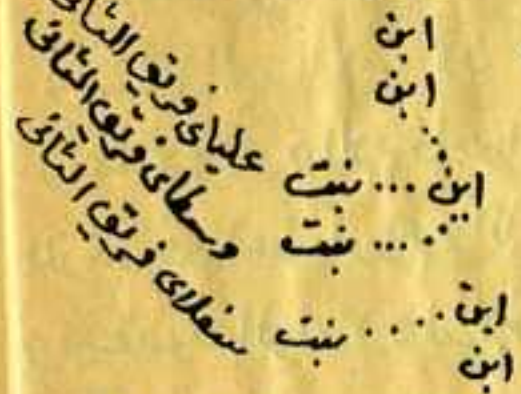 ابن
ابن
ابن ... بنت علیای فریق الثانی
... بنت وسطای فریق الثانی
ابن .... بنت سفلای فریق الثانی
ابن